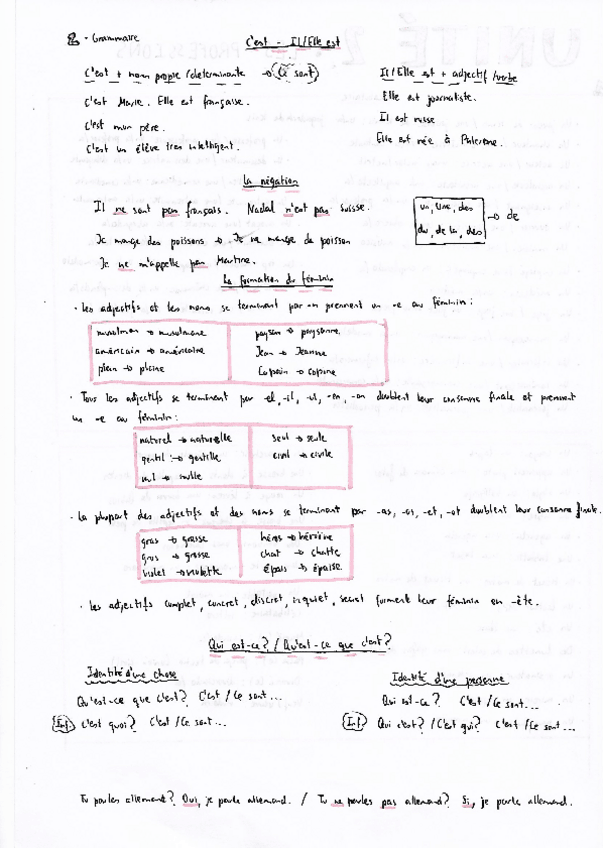 2.- Grammaire
C'est - Il/Elle est
C'est + nom propre/determinante → (Ce sont)
Il/Elle est + adjectif/verbe
C'est Marie. Elle est française.
Elle est journaliste.
C'est mon père.
Il est russe
C'est un élève tres intelligent.
Elle est née à Palerme.
La négation
Il ne sont pas français. Nadal n'est pas suisse.
un, une, des
du, de la, des
→ de
Je mange des poissons → Je ne mange de poisson
Je ne m'appelle pas Martine.
La formation du féminin
· Les adjectifs et les noms se terminant par -n prennent un -e au féminin:
musulman → musulmane
paysan → paysanne
américain → américaine
Jean → Jeanne
plein → pleine
Copain → copine
· Tous les adjectifs se terminant par -el, -il, -ul, -en, -on doublent leur consonne finale et prennent
un -e au féminin:
naturel → naturelle
seul → seule
gentil → gentille
civil → civile
nul → nulle
· La plupart des adjectifs et des noms se terminant par -as, -os, -et, -ot doublent leur consonne finale.
gras → grasse
héros → héroïne
gros → grosse
chat → chatte
violet → violette
épais → épaise
· Les adjectifs complet, concret, discret, inquiet, secret forment leur féminin en -ète.
Qui est-ce? / Qu'est-ce que c'est?
Identité d'une chose
Identité d'une personne
Qu'est-ce que c'est? C'est / Ce sont...
Qui est-ce? C'est / Ce sont...
Inf C'est quoi? C'est / Ce sont...
Inf Qui c'est? / C'est qui? C'est / Ce sont...
Tu parles allemand? Oui, je parle allemand. / Tu ne parles pas allemand? Si, je parle allemand.